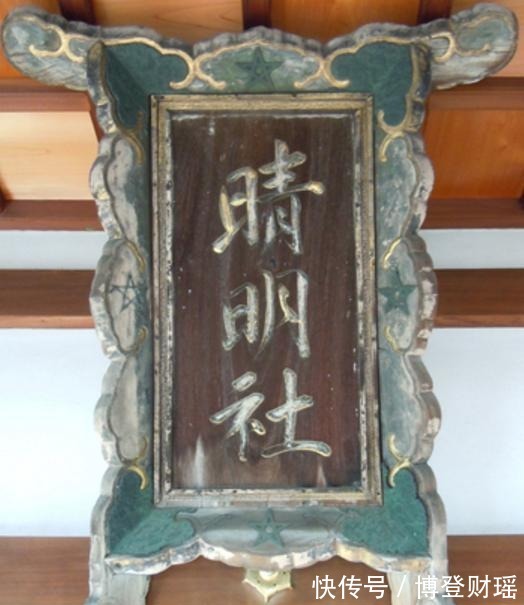 晴明社
快传号/博登财瑶